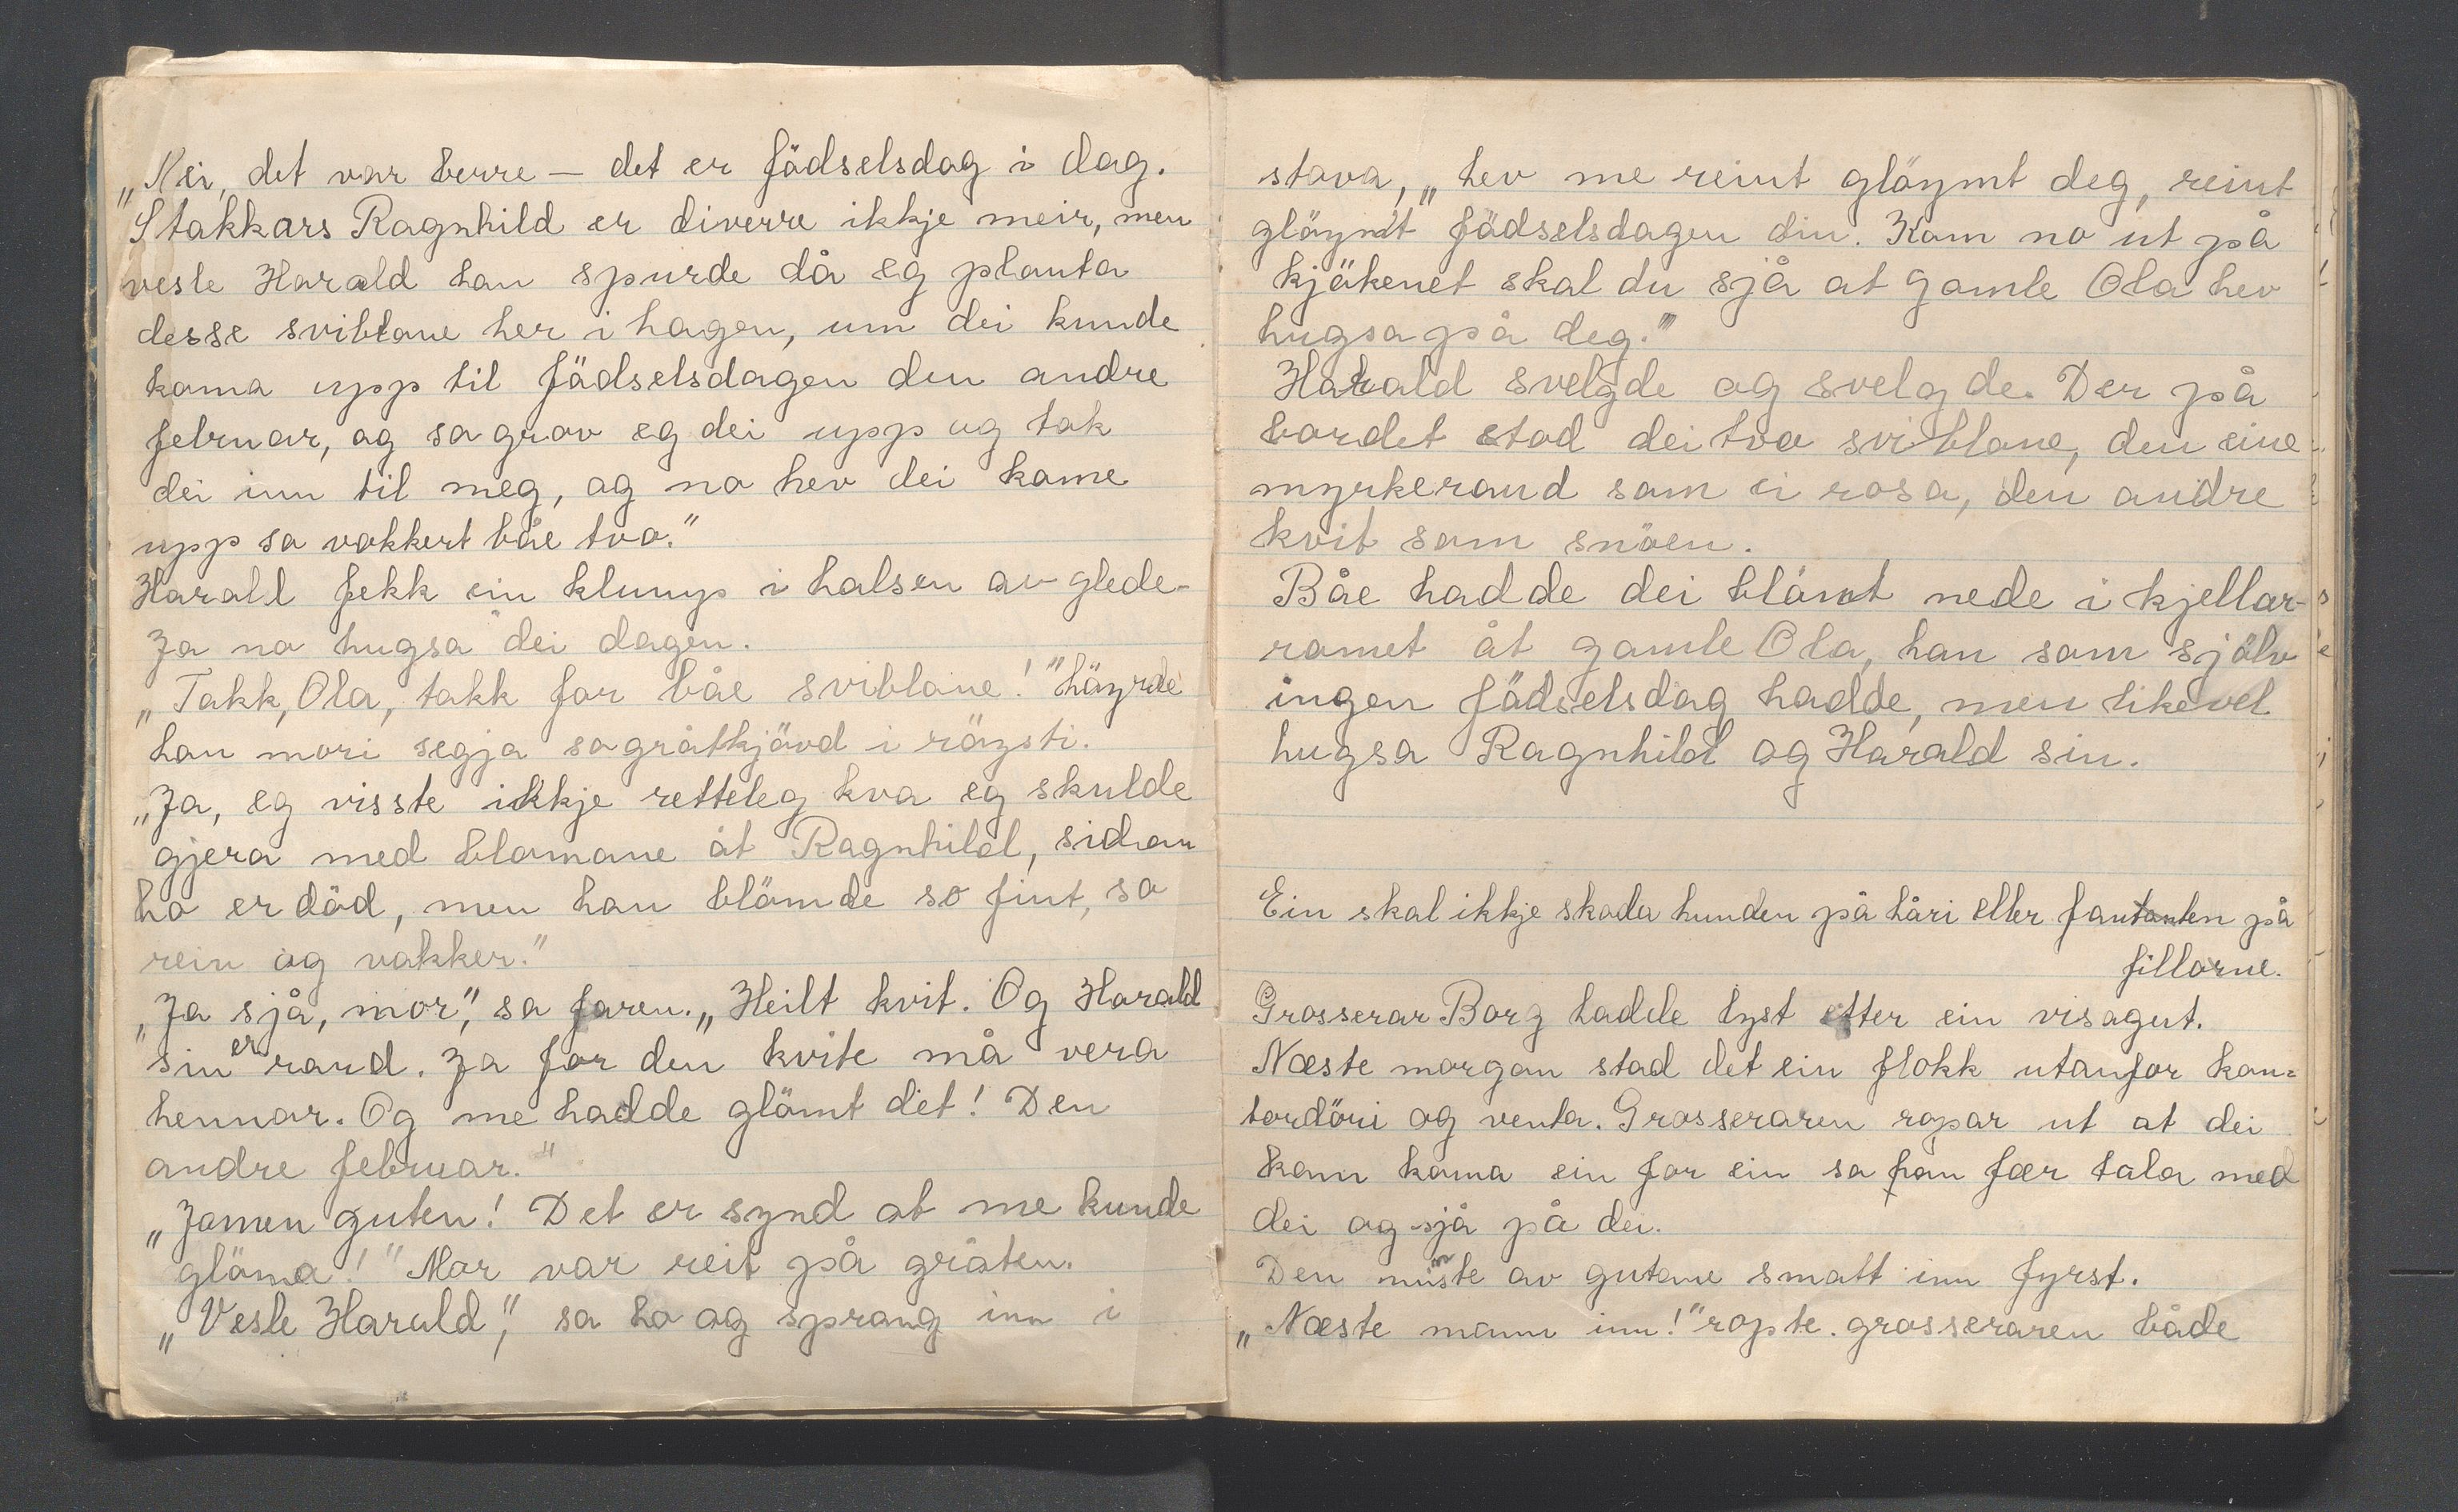 „Nei, det var berre — det er födselsdag i dag.
Stakkars Ragnhild er diverre ikkje meir, men
vesle Harald han spurde då eg planta
desse sviblane her i hagen, um dei kunde
koma upp til födselsdagen den andre
februar, og so grov eg dei upp og tok
dei inn til meg, og no hev dei kome
upp so vakkert båe tvo."
Harald fekk ein klump i halsen av glede.
Ja no hugsa dei dagen.
„Takk, Ola, takk for båe sviblane!" höyrde
han mori segja so gråtkjövd i röysti.
„Ja, eg visste ikkje retteleg kva eg skulde
gjera med blomane åt Ragnhild, sidan
ho er död, men han blömde so fint, so
rein og vakker."
„Ja sjå, mor", sa faren. „Heilt kvit. Og Harald
sin er raud. Ja for den kvite må vera
hennar. Og me hadde glömt det! Den
andre februar."
„Jamen guten! Det er synd at me kunde
glöma!" Mor var reit på gråten.
„Vesle Harald", sa ho og sprang inn i
stova, „hev me reint glöymt deg, reint
glöymt födselsdagen din. Kom no ut på
kjökenet skal du sjå at gamle Ola hev
hugsa på deg."
Harald svelgde og svelgde. Der på
bordet stod dei tvo sviblane, den eine
myrkeraud som ei rosa, den andre
kvit som snöen.
Båe hadde dei blömt nede i kjellar-
romet åt gamle Ola, han som sjölv
ingen födselsdag hadde, men likevel
hugsa Ragnhild og Harald sin.
Ein skal ikkje skoda hunden på håri eller fanten på
fillorne.
Grosserar Borg hadde lyst etter ein visagut.
Næste morgon stod det ein flokk utanfor kon=
tordöri og venta. Grosseraren ropar ut at dei
kann koma ein for ein so han fær tala med
dei og sjå på dei.
Den minste av gutane smatt inn fyrst.
„Næste mann inn!" ropte grosseraren både